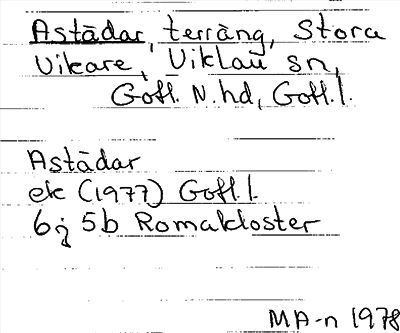 Astādar, terräng, Stora
Vikare, Viklau sn,
Gotl. N. hd, Gotl. l.
Astādar
ek (1977) Gotl. l.
6j 5b Romakloster
MA-n 1978